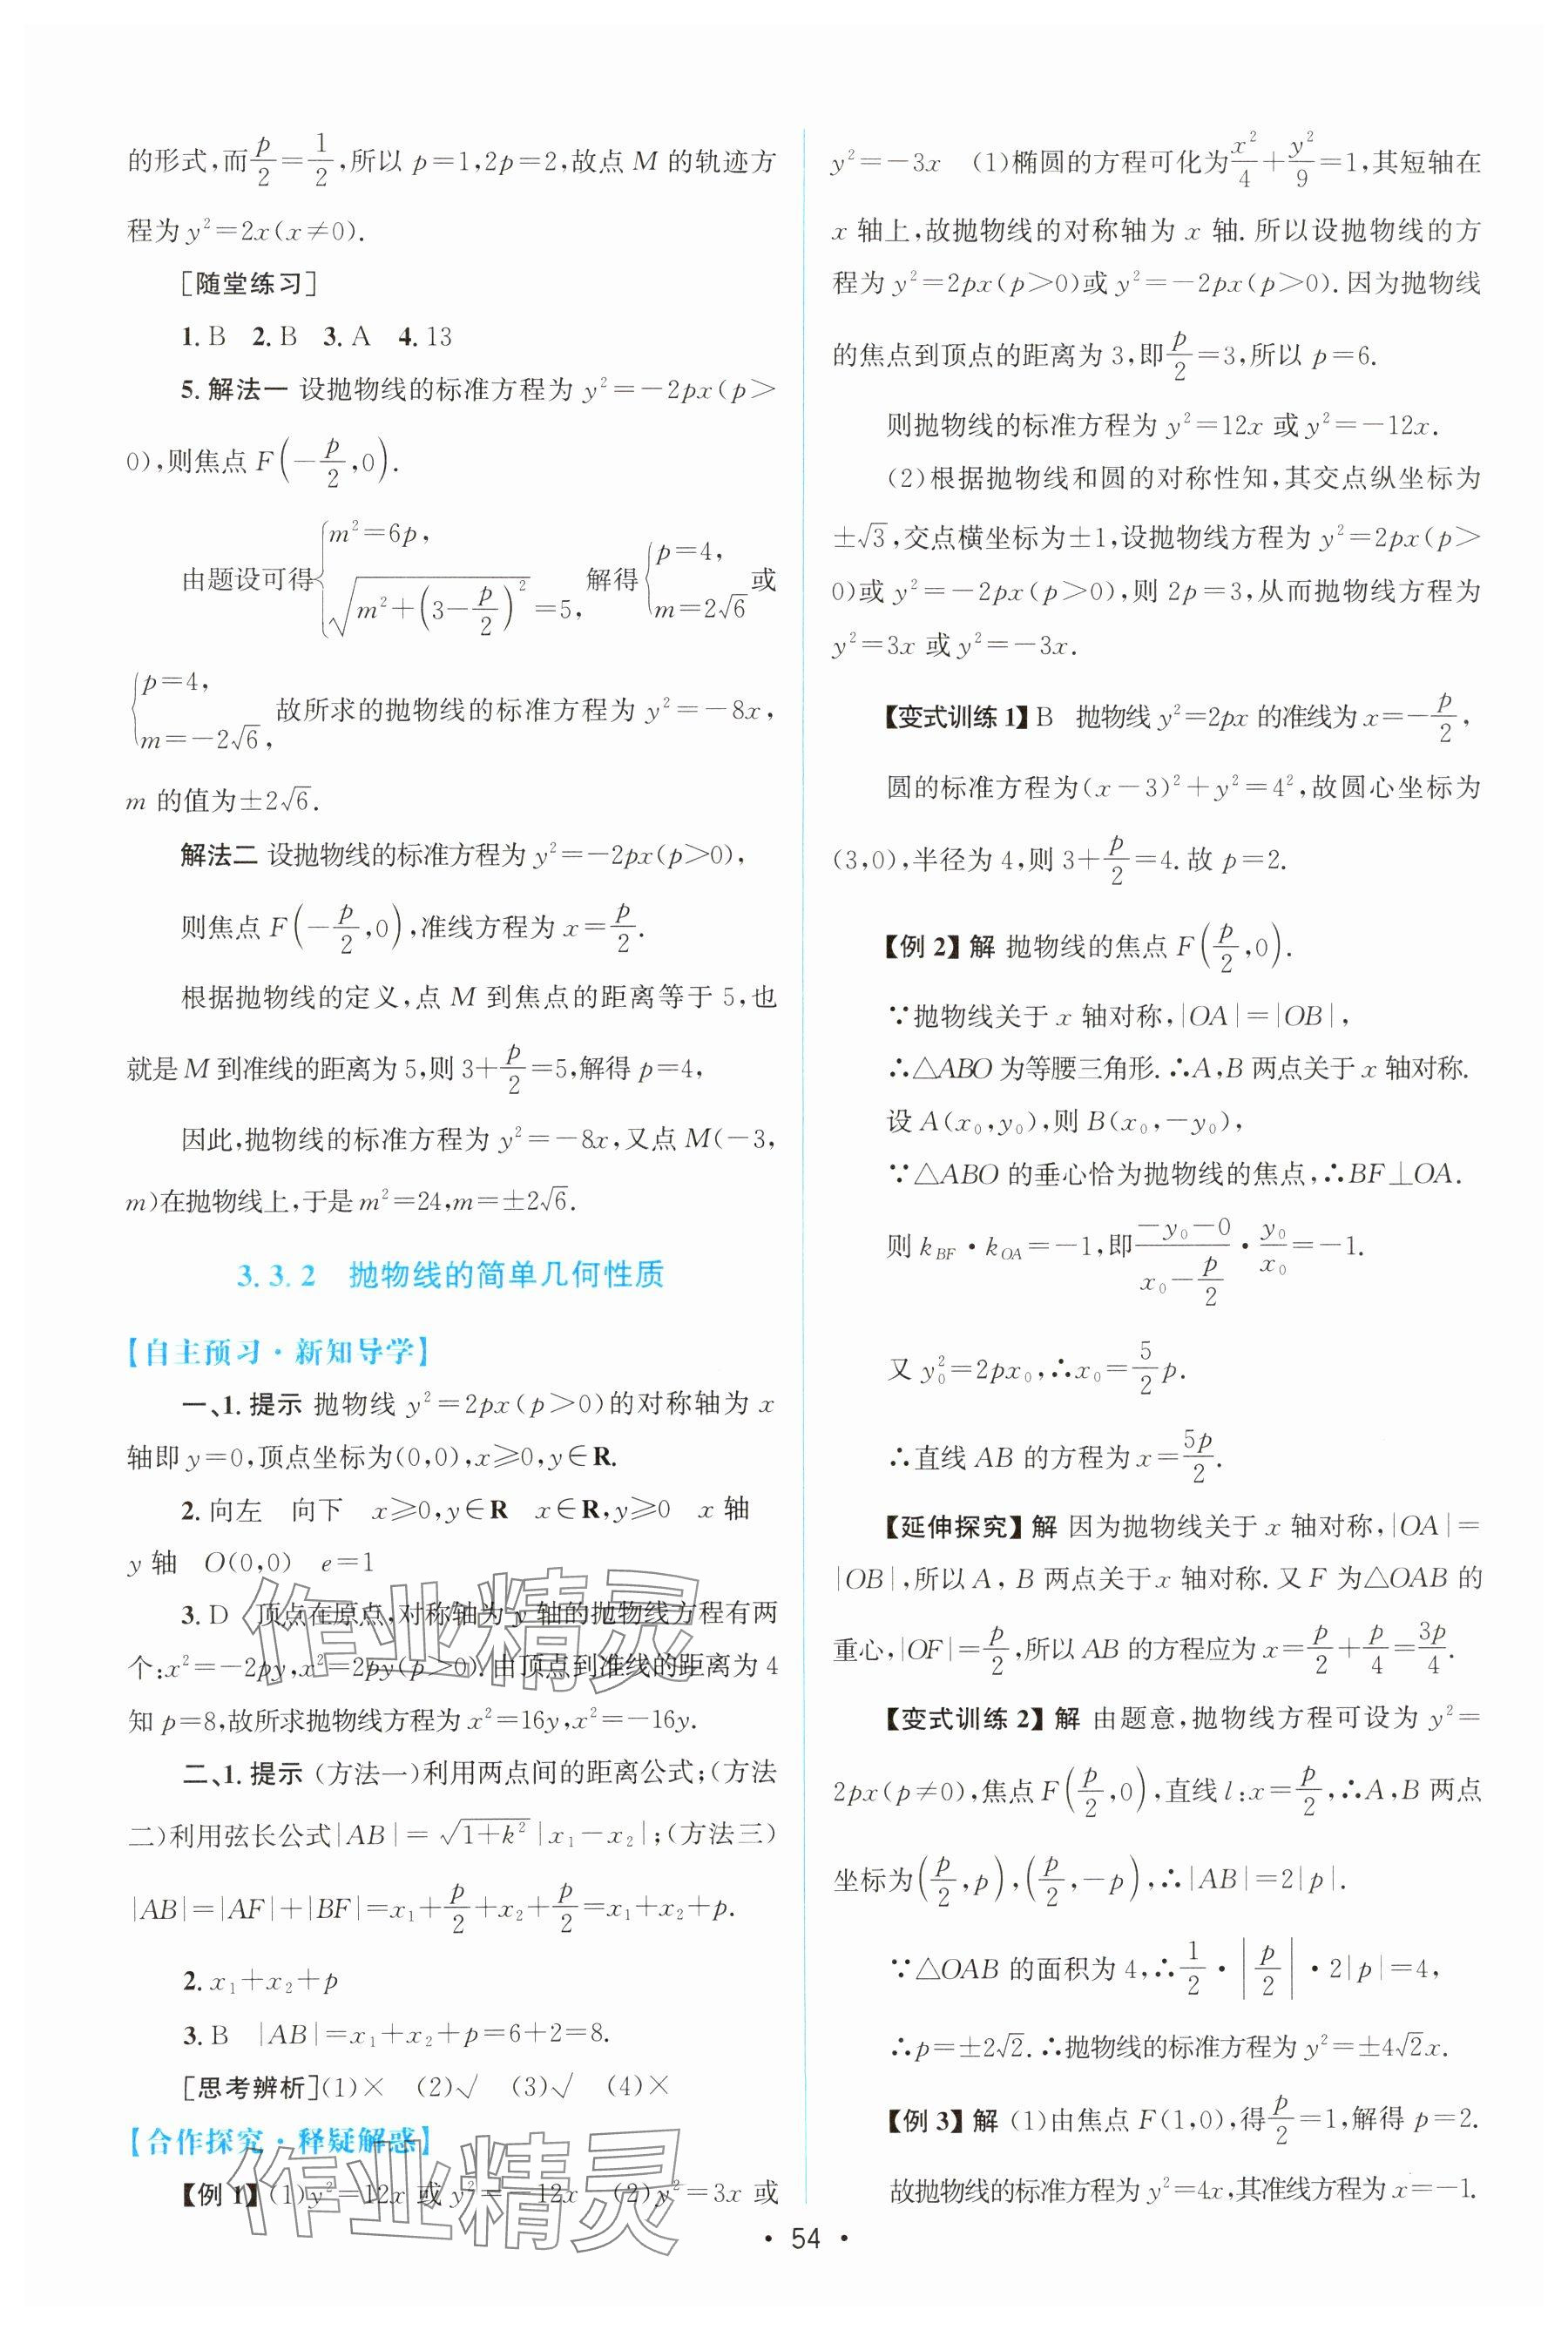 的形式,而p/2=1/2,所以 p=1,2p=2,故点 M 的轨迹方
程为 y²=2x(x≠0).
[随堂练习]
1. B 2. B 3. A 4. 13
5. 解法一 设抛物线的标准方程为 y²=-2px(p>
0),则焦点 F(-p/2,0).
由题设可得{m²=6p, √(m²+(3-p/2)²)=5, 解得{p=4, m=2√6 或
{p=4, m=-2√6, 故所求的抛物线的标准方程为 y²=-8x,
m 的值为±2√6.
解法二 设抛物线的标准方程为 y²=-2px(p>0),
则焦点 F(-p/2,0),准线方程为 x=p/2.
根据抛物线的定义,点 M 到焦点的距离等于 5,也
就是 M 到准线的距离为 5,则 3+p/2=5,解得 p=4,
因此,抛物线的标准方程为 y²=-8x,又点 M(-3,
m)在抛物线上,于是 m²=24,m=±2√6.
3.3.2 抛物线的简单几何性质
【自主预习·新知导学】
一、1. 提示 抛物线 y²=2px(p>0)的对称轴为 x
轴即 y=0,顶点坐标为(0,0),x≥0,y∈R.
2. 向左 向下 x≥0,y∈R x∈R,y≥0 x 轴
y 轴 O(0,0) e=1
3. D 顶点在原点,对称轴为 y 轴的抛物线方程有两
个:x²=-2py,x²=2py(p>0).由顶点到准线的距离为 4
知 p=8,故所求抛物线方程为 x²=16y,x²=-16y.
二、1. 提示 (方法一)利用两点间的距离公式;(方法
二)利用弦长公式|AB|=√(1+k²)|x₁-x₂|;(方法三)
|AB|=|AF|+|BF|=x₁+p/2+x₂+p/2=x₁+x₂+p.
2. x₁+x₂+p
3. B |AB|=x₁+x₂+p=6+2=8.
[思考辨析](1)× (2)√ (3)√ (4)×
【合作探究·释疑解惑】
【例 1】(1)y²=12x 或 y²=-12x (2)y²=3x 或
y²=-3x (1)椭圆的方程可化为x²/4+y²/9=1,其短轴在
x 轴上,故抛物线的对称轴为 x 轴. 所以设抛物线的方
程为 y²=2px(p>0)或 y²=-2px(p>0). 因为抛物线
的焦点到顶点的距离为 3,即p/2=3,所以 p=6.
则抛物线的标准方程为 y²=12x 或 y²=-12x.
(2)根据抛物线和圆的对称性知,其交点纵坐标为
±√3,交点横坐标为±1,设抛物线方程为 y²=2px(p>
0)或 y²=-2px(p>0),则 2p=3,从而抛物线方程为
y²=3x 或 y²=-3x.
【变式训练 1】B 抛物线 y²=2px 的准线为 x=-p/2,
圆的标准方程为(x-3)²+y²=4²,故圆心坐标为
(3,0),半径为 4,则 3+p/2=4. 故 p=2.
【例 2】解 抛物线的焦点 F(p/2,0).
∵抛物线关于 x 轴对称,|OA|=|OB|,
∴△ABO 为等腰三角形. ∴A,B 两点关于 x 轴对称.
设 A(x₀,y₀),则 B(x₀,-y₀),
∵△ABO 的垂心恰为抛物线的焦点,∴BF⊥OA.
则 k_BF·k_OA=-1,即(-y₀-0)/(x₀-p/2)·y₀/x₀=-1.
又 y₀²=2px₀,∴x₀=5/2 p.
∴直线 AB 的方程为 x=5p/2.
【延伸探究】解 因为抛物线关于 x 轴对称,|OA|=
|OB|,所以 A,B 两点关于 x 轴对称. 又 F 为△OAB 的
重心,|OF|=p/2,所以 AB 的方程应为 x=p/2+p/4=3p/4.
【变式训练 2】解 由题意,抛物线方程可设为 y²=
2px(p≠0),焦点 F(p/2,0),直线 l:x=p/2,∴A,B 两点
坐标为(p/2,p),(p/2,-p),∴|AB|=2|p|.
∵△OAB 的面积为 4,∴1/2·|p/2|·2|p|=4,
∴p=±2√2. ∴抛物线的标准方程为 y²=±4√2x.
【例 3】解 (1)由焦点 F(1,0),得p/2=1,解得 p=2.
故抛物线的标准方程为 y²=4x,其准线方程为 x=-1.
· 54 ·
作业精灵
作业精灵